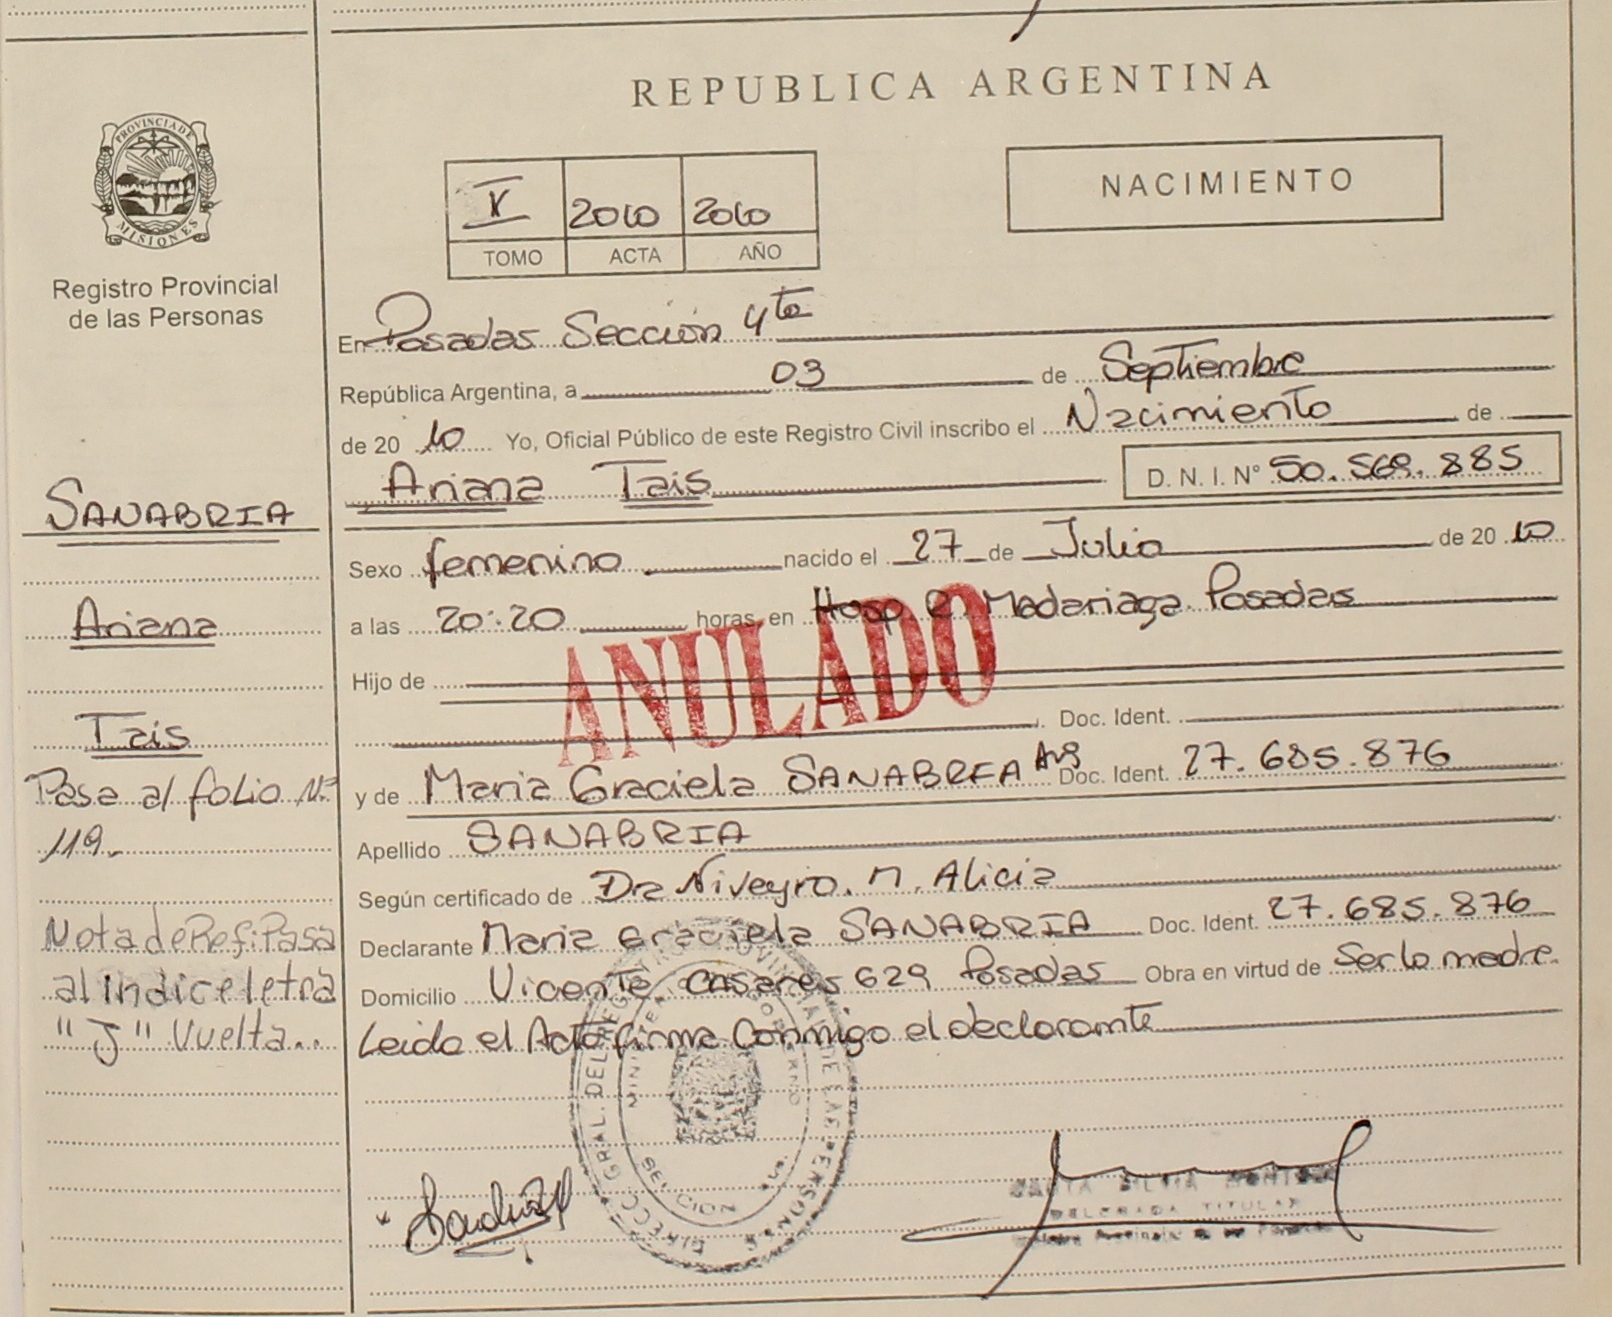 REPUBLICA ARGENTINA
PROVINCIA DE
MISIONES
Registro Provincial
de las Personas
V 2010 2010
TOMO ACTA AÑO
NACIMIENTO
En Posadas Sección 4ta
República Argentina, a 03 de Septiembre
de 20 10 Yo, Oficial Público de este Registro Civil inscribo el Nacimiento de
Ariana Tais D. N. I. Nº 50.569.885
Sexo femenino nacido el 27 de Julio de 20 10
a las 20:20 horas en Hosp R. Madariaga Posadas
ANULADO
Hijo de
Doc. Ident.
y de Maria Graciela SANABREA Doc. Ident. 27.685.876
Apellido SANABRIA
Según certificado de Dra Niveyro. M. Alicia
Declarante Maria Graciela SANABRIA Doc. Ident. 27.685.876
Domicilio Vicente Casares 629 Posadas Obra en virtud de Ser la madre
Leida el Acta firma Conmigo el declarante
SANABRIA
Ariana
Tais
Pasa al folio Nº
119.
Nota de Ref: Pasa
al indice letra
"J" Vuelta..
DELEGADA TITULAR